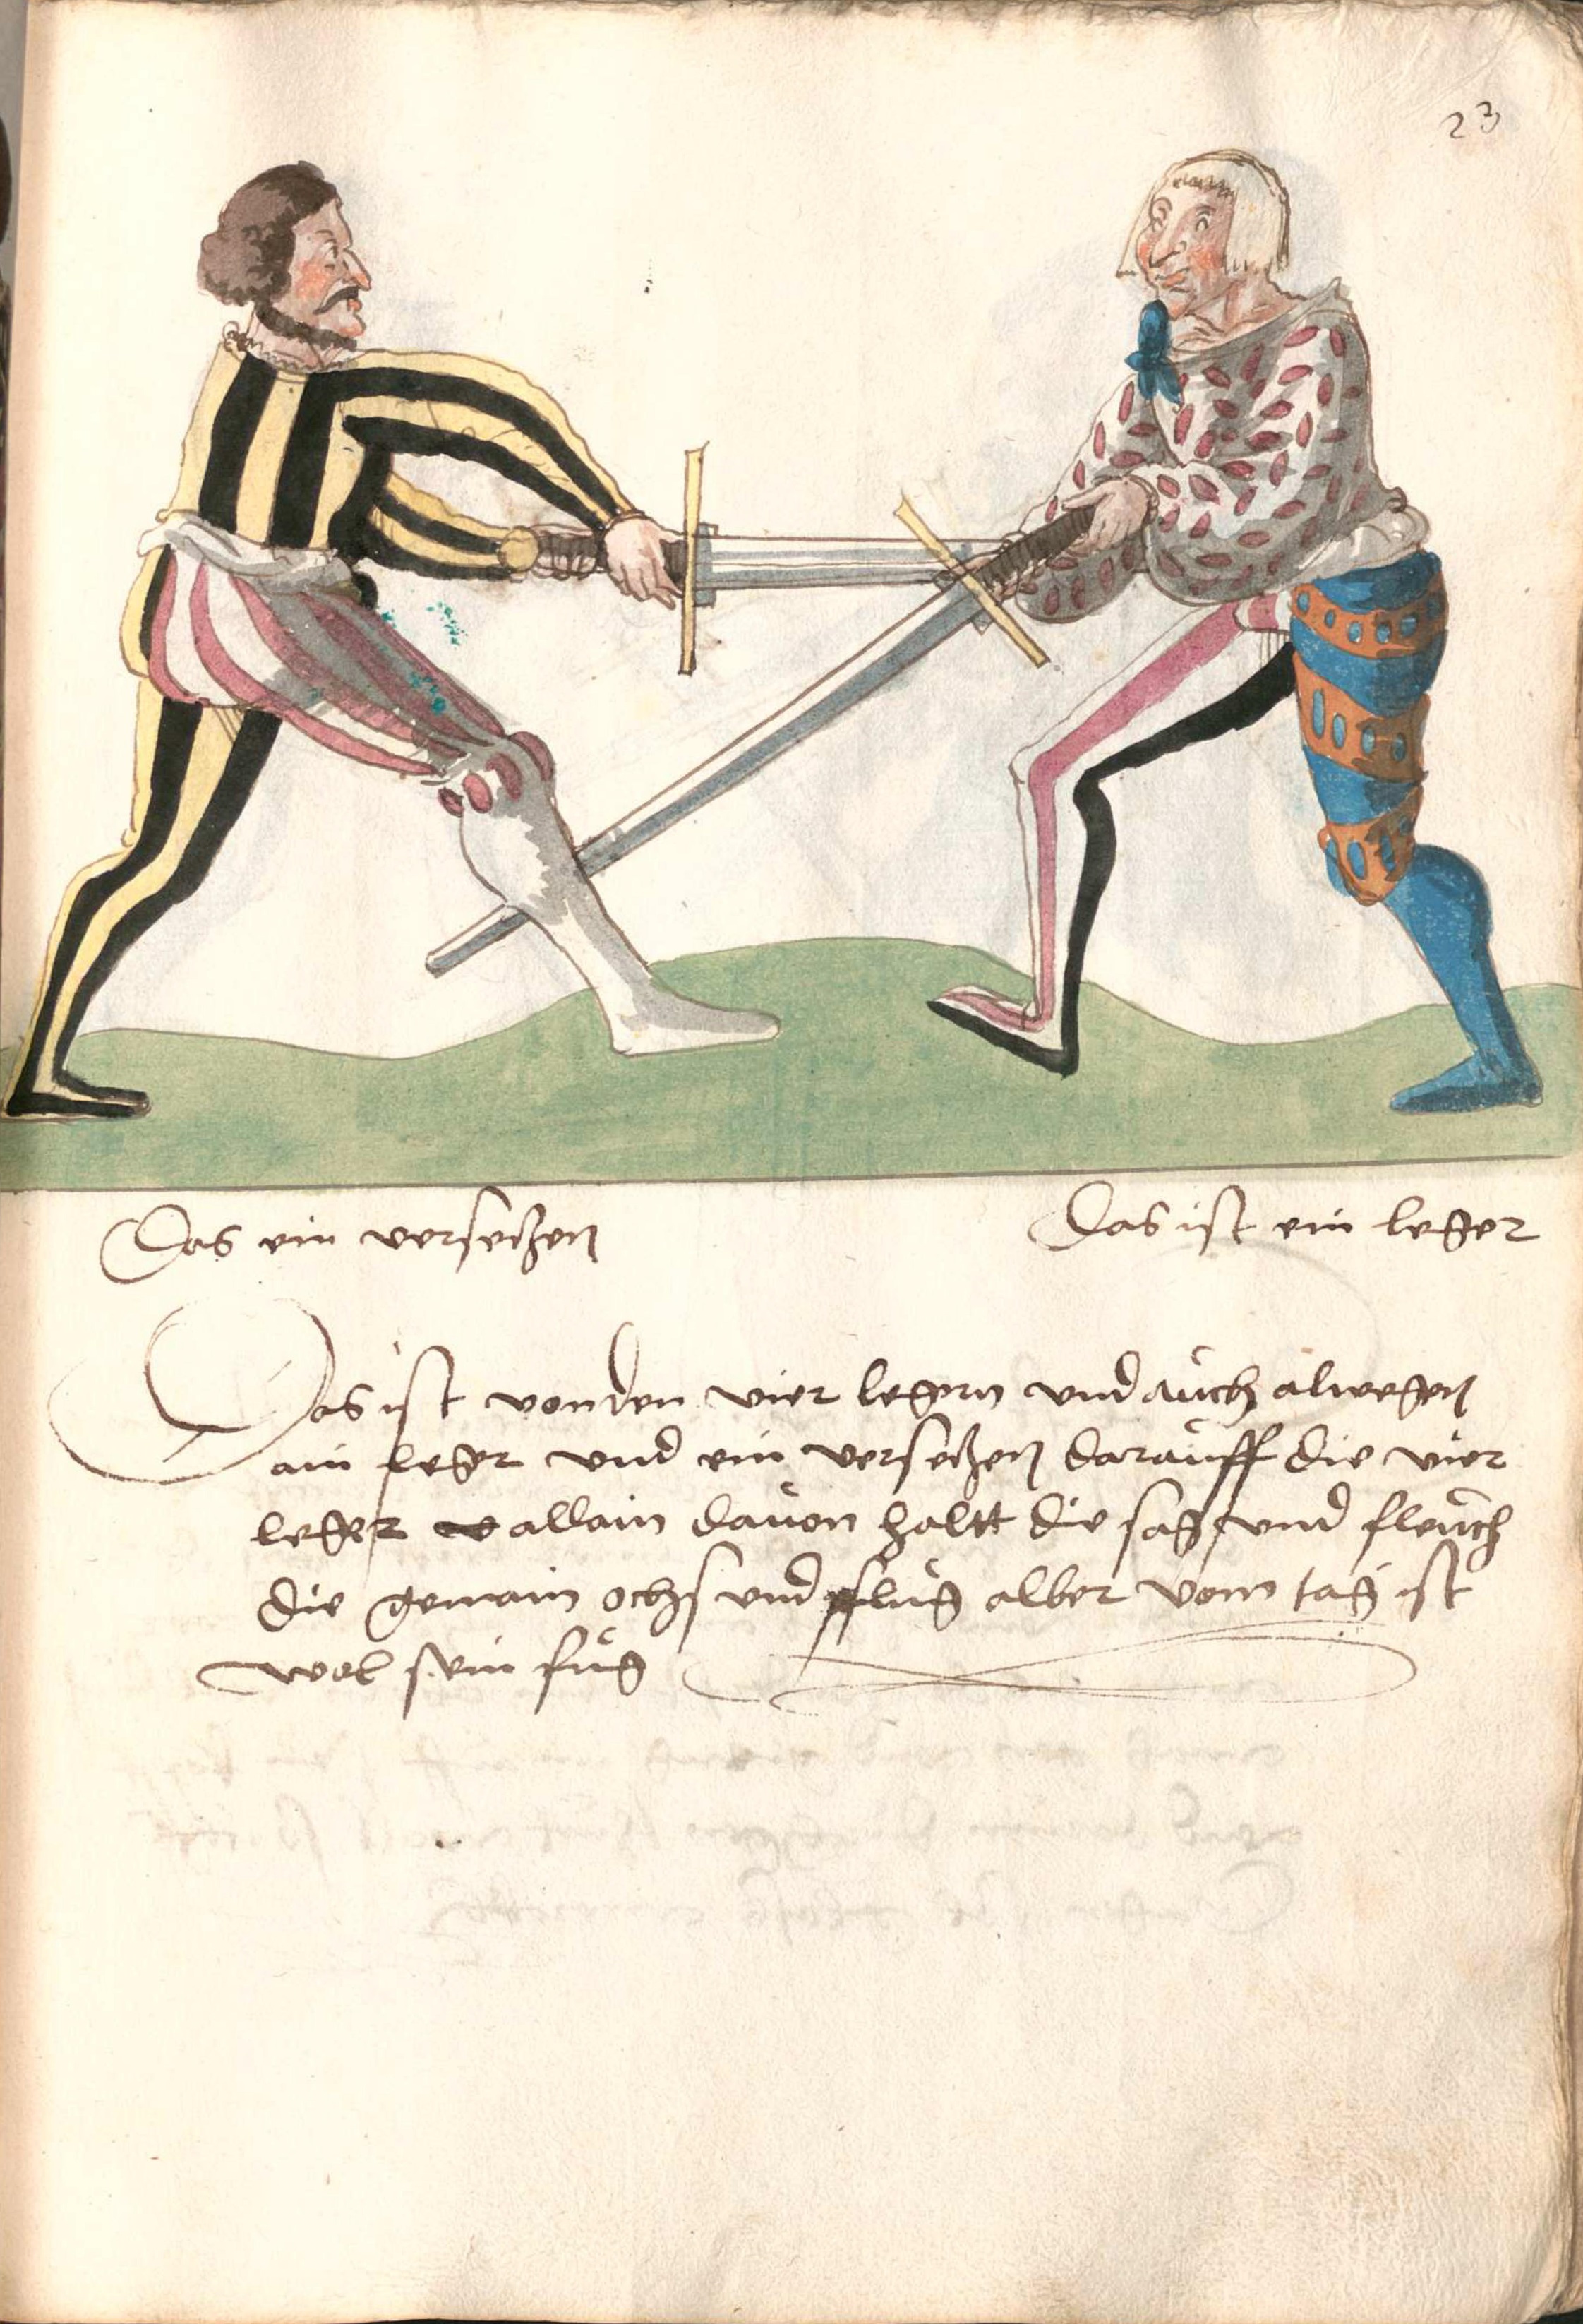 23
Das ein verseczen
Das ist ein leger
Das ist von den vier legern und auch alwegen
ain leger und ein verseczen darauff die vier
leger allain dauon haltt die sag und fleuch
die gemain ochs und pflug alber vom tag ist
wol sein fug